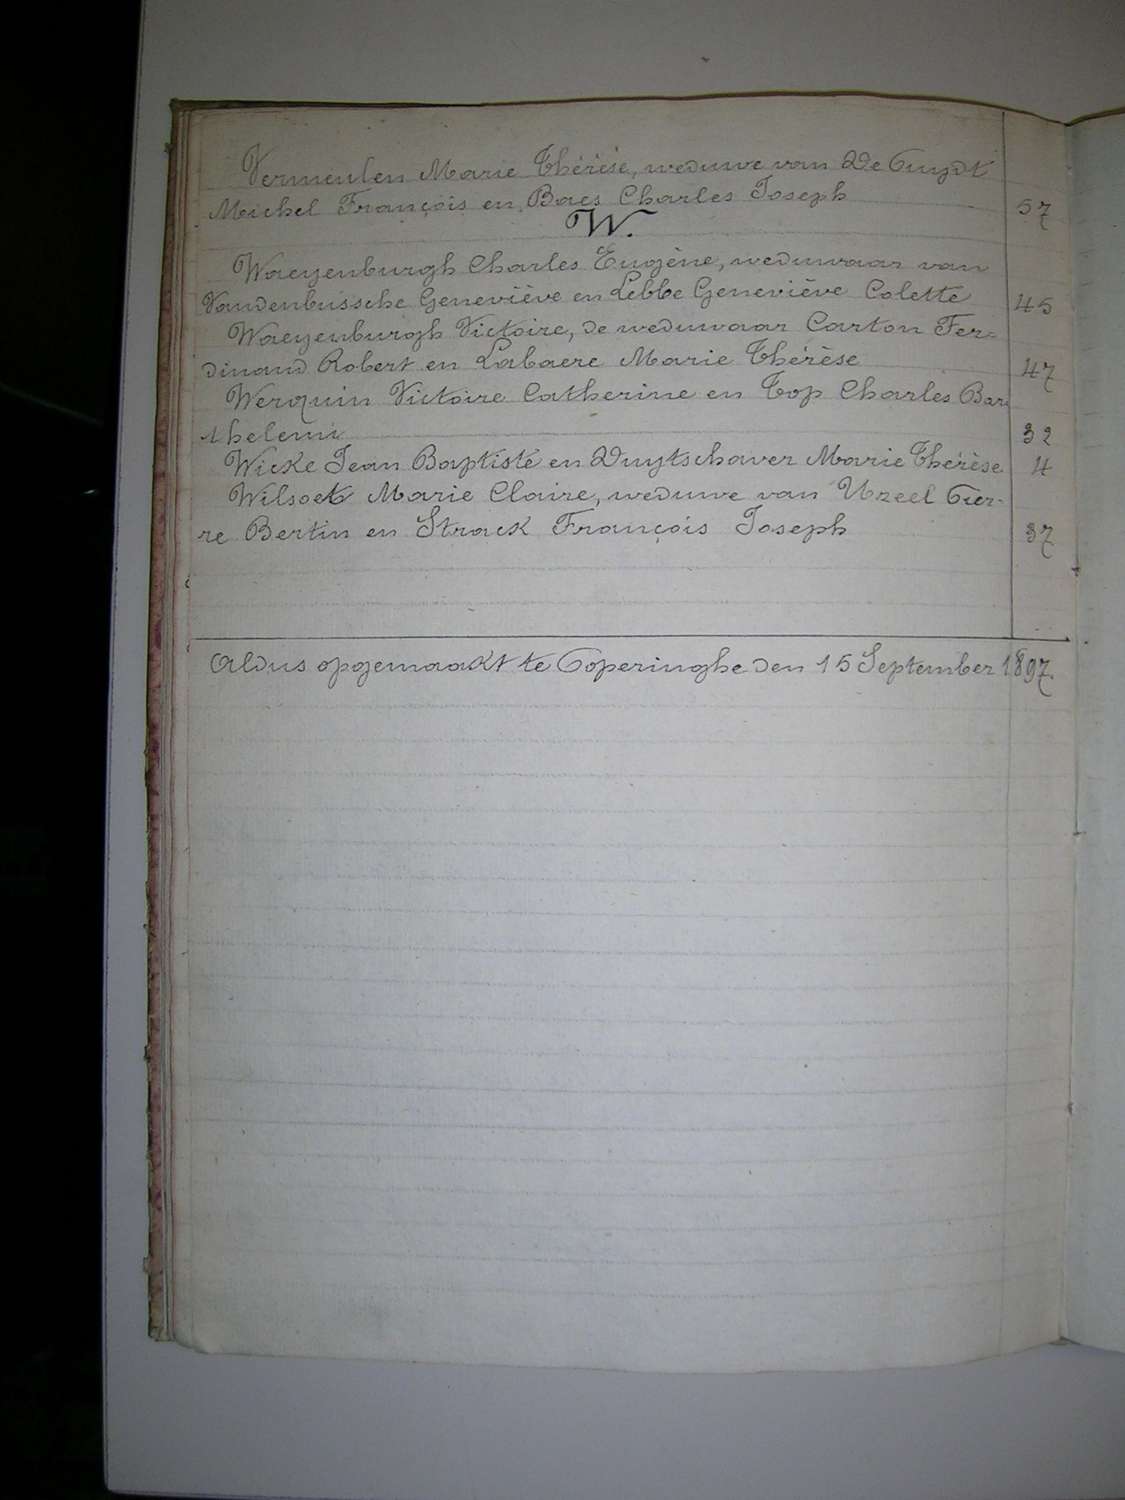 Vermeulen Marie Thérèse, weduwe van De Puydt
Michel François en Baes Charles Joseph 57
W.
Waeyenburgh Charles Eugène, weduwaar van
Vandenbussche Geneviève en Lebbe Geneviève Colette 45
Waeyenburgh Victoire, de weduwaar Carton Fer=
dinand Robert en Labaere Marie Thérèse 47
Werquin Victoire Catherine en Top Charles Bar
thelemi 32
Wicke Jean Baptiste en Duytschaver Marie Thérèse 4
Wilsoet Marie Claire, weduwe van Uzeel Pier-
re Bertin en Strack François Joseph 37
Aldus opgemaakt te Poperinghe den 15 September 1897.